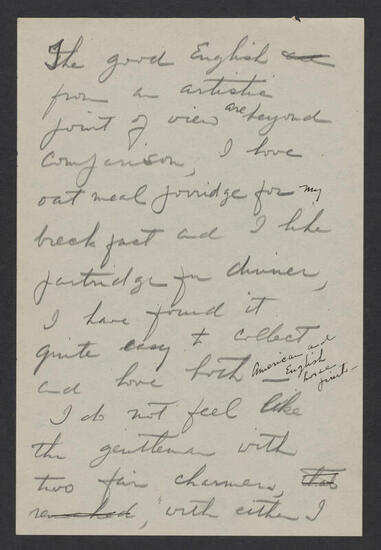 The good English ad
from an artistic
point of view are beyond
comparison, I love
oat meal porridge for my
breekfast ad I like
partridge for dinner,
I have found it
quite easy to collect
and love both – American and
English
horse
prints –
I do not feel like
the gentleman with
two fair charmers, that
remarked, "with either I